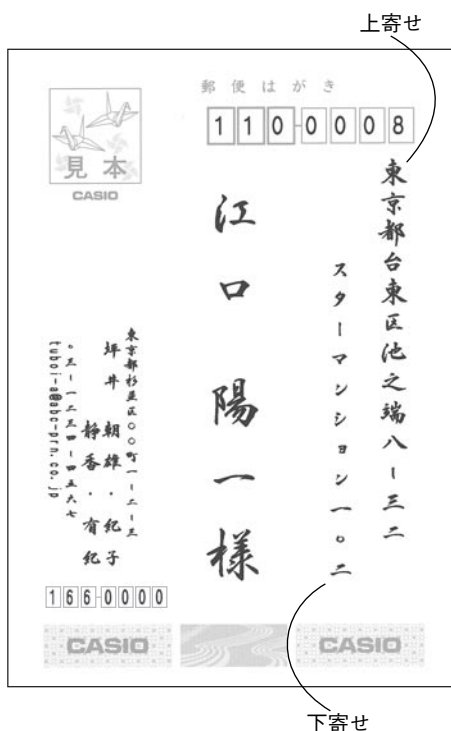 上寄せ
郵便はがき
110-0008
東京都台東区池之端八ー三二
スターマンション一〇二
江口 陽一様
見本
CASIO
東京都杉並区〇〇町一ー二ー三
坪井 朝雄・紀子
静香・有紀
〇三ー一二三四ー四五六七
tuboi-a@abc-prn.co.jp
166-0000
CASIO
CASIO
下寄せ